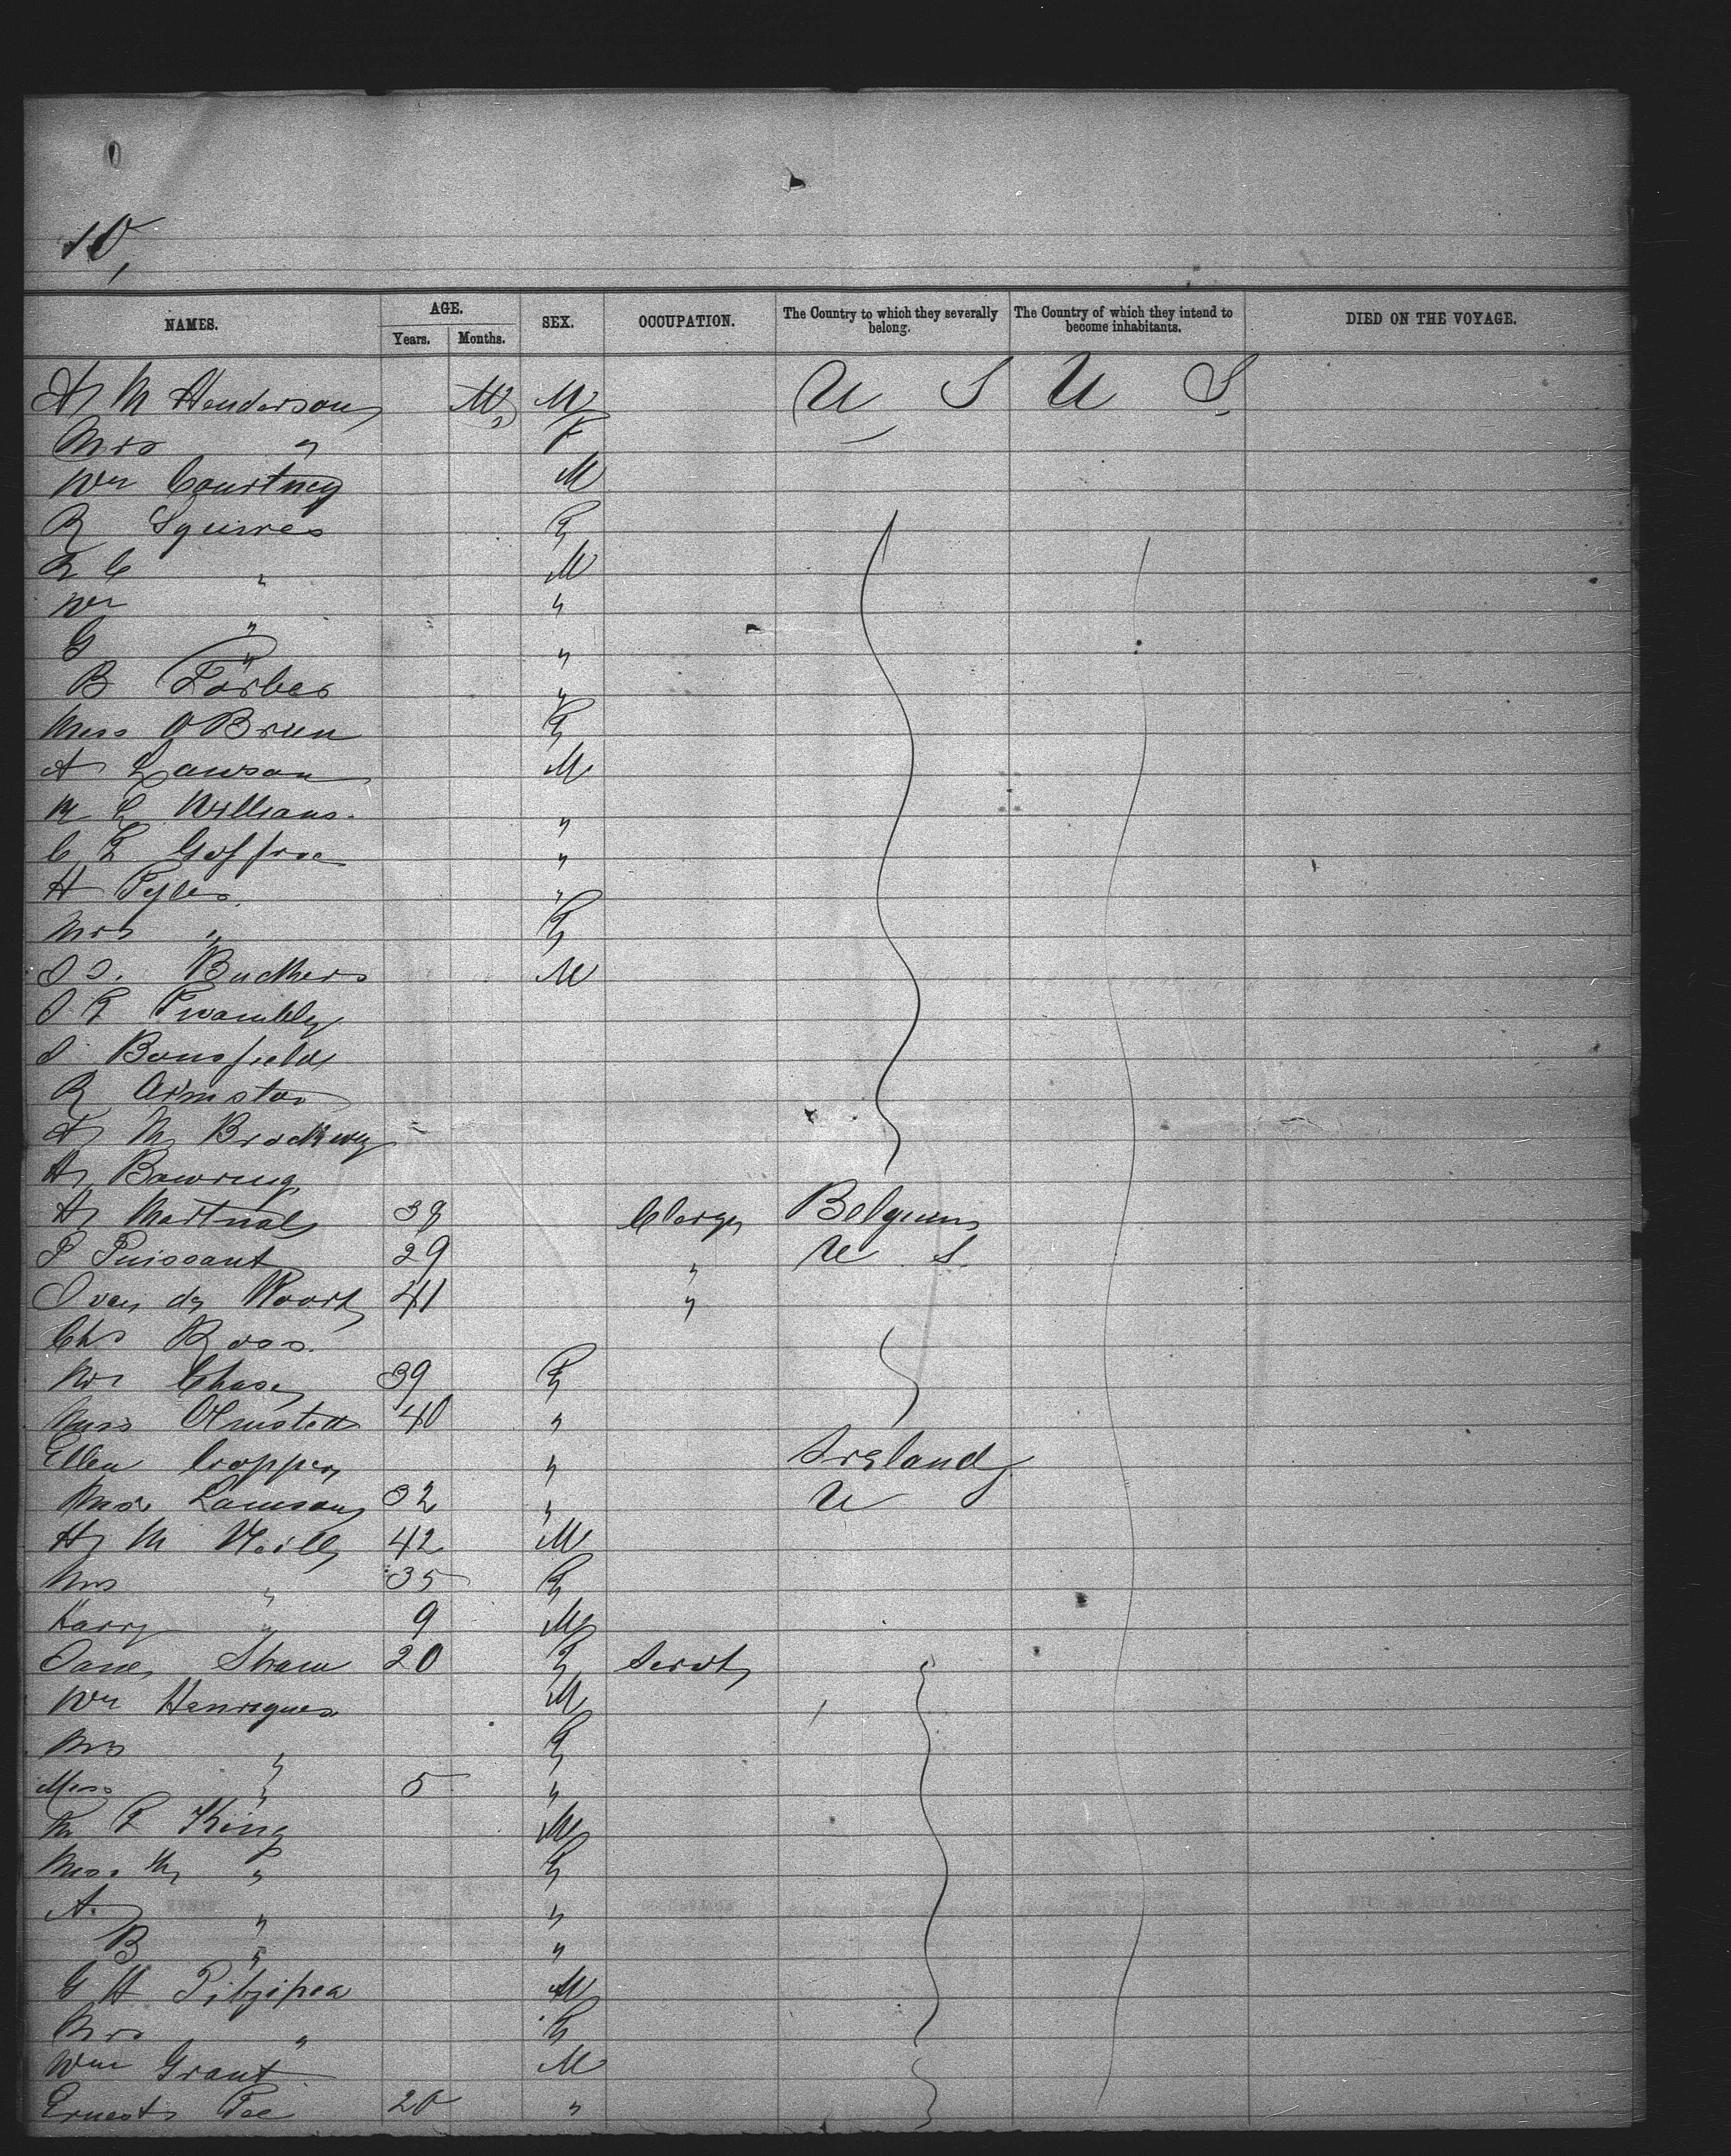 10,
NAMES. AGE. SEX. OCCUPATION. The Country to which they severally belong. The Country of which they intend to become inhabitants. DIED ON THE VOYAGE.
Years. Months.
H M Henderson M M U S U S
Mrs " F
Wm Courtney M
R Squires F
R C " M
Wm " "
G " "
B Forbes "
Miss O'Brien F
A Lawson M
M L Williams. "
C F "
H Tyler "
Mrs " F
J J. M
J F Twambley
J Bousfield
R
H M Brockway
H Bowring
H 38 Clergy Belgium
P Puissant 29 " U S.
J van de 41 "
Chs Ross.
Mrs Chase 39 F
Miss Olmsted 40 "
Ellen Cropper " Ireland
Miss Lawson 32 " U
H M 42 M
Mrs " 35 F
Harry " 9 M
Jane Shaw 20 F Servt
Wm Henriques M
Mrs " F
Miss " 5 "
M F King M
Miss M " F
A. " "
B " "
G H M
Mrs " F
Wm Grant M
Ernest 20 "